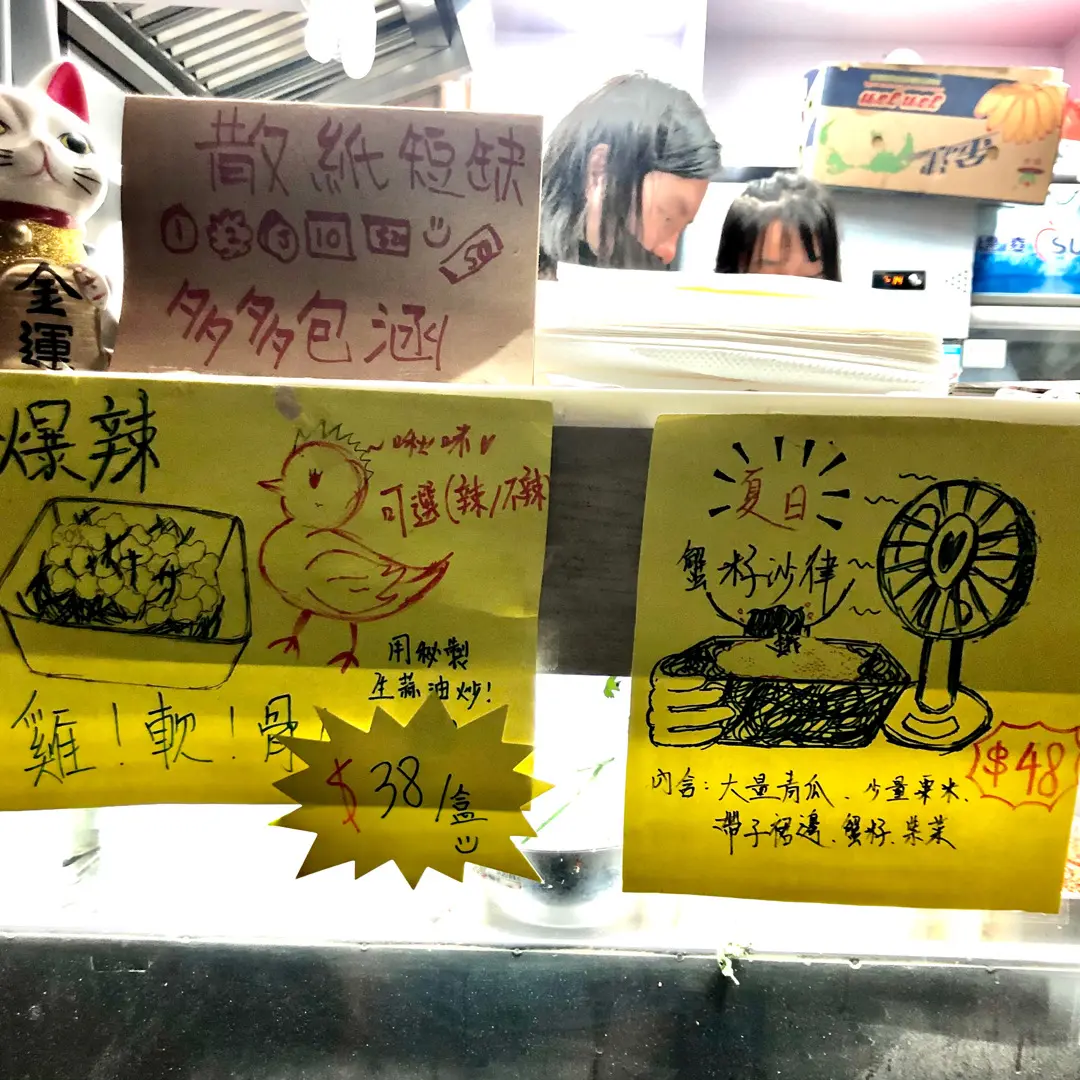 散紙短缺
1 2 5 10 20 50
多多包涵
金
運
爆辣
啾味
可選(辣/不辣)
用秘製
生蒜油炒!
雞!軟!骨
$38/盒
夏日
蟹籽沙律
$48
內含:大量青瓜、少量粟米、
帶子裙邊、蟹籽、柴菜